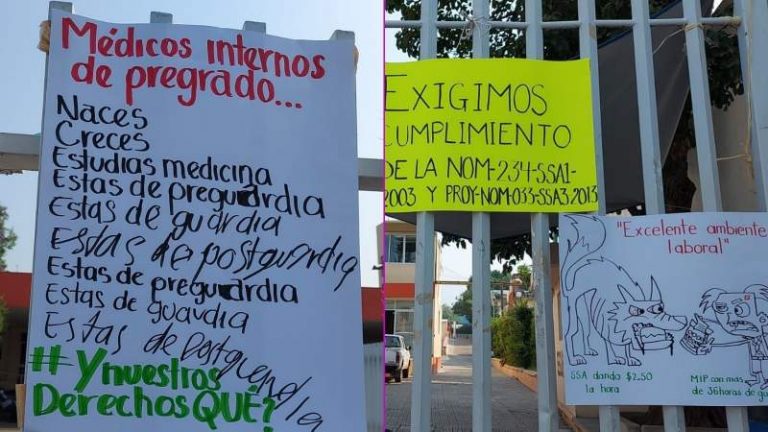 Médicos internos
de pregrado...
Naces
Creces
Estudias medicina
Estas de preguardia
Estas de guardia
Estas de postguardia
Estas de preguardia
Estas de guardia
Estas de postguardia
#Ynuestros
DerechosQUÉ?
EXIGIMOS
CUMPLIMIENTO
DE LA NOM-234-SSA1-
2003 Y PROY-NOM-033-SSA3 2013
"Excelente ambiente
laboral"
SSA dando $2.50
la hora
MIP con mas
de 36 horas de gu